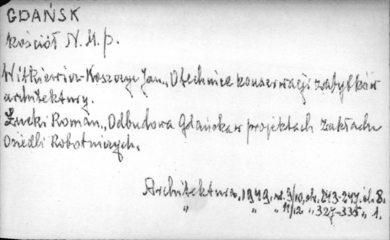 GDAŃSK
kościół N.M.P.
Witkiewicz-Koszczyc Jan „O technice konserwacji zabytków
architektury.
Żucki Roman „Odbudowa Gdańska w projektach Zakładu
Osiedli Robotniczych.
Architektura, 1949, z. 9/10, str. 243-247, il. 8.
" " " 11/12 " 327-335 " 1.